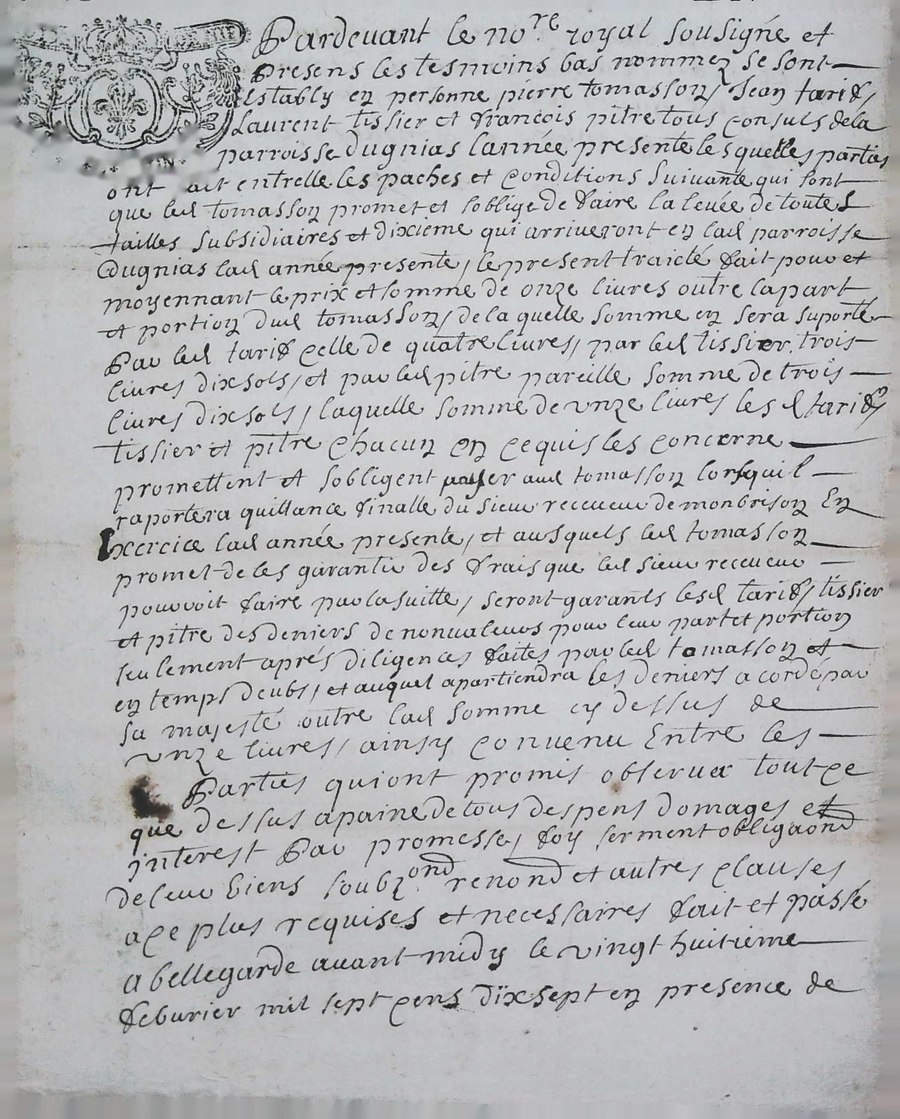 Pardevant le no.re royal sousigné et
presens les tesmoins bas nommez se sont
establÿ en personne pierre tomasson, Jean tarif,
Laurent tissier et francois pitre tous consuls de la
parroisse dugnias lannée presente lesquelles parties
ont fait entrelle les paches et conditions suivante qui sont
que led tomasson promet et soblige de faire la levée de toutes
tailles subsidiaires et dixieme qui arriveront en lad parroisse
dugnias lad année presente, le present traicté fait pour et
moyennant le prix et somme de onze livres outre la part
et portion dud tomasson, de la quelle somme en sera suporté
par led tarif celle de quatre livres, par led tissier trois
livres dix sols, et par led pitre pareille somme de trois
livres dix sols, laquelle somme de unze livres lesd tarif,
tissier et pitre chacun en ce quis les concerne
promettent et sobligent payer aud tomasson lorsquil
raportera quittance finalle du sieur receveur de monbrison En
Exercice lad année presente, et ausquels led tomasson
promet de les garantir des frais que led sieur receveur
pouroit faire par la suitte, seront garants lesd tarif, tissier
et pitre des deniers de nonvaleurs pour leur part et portion
seulement aprés diligences faites par led tomasson et
en temps deubs, et auquel apartiendra les deniers acordé par
sa majesté outre lad somme cy dessus de
unze livres, ainsy convenu Entre les
Parties qui ont promis observer tout ce
que dessus apaine de tous despens domages et
interest Par promesse, foy serment obligaond
de leur biens soubzond renond et autres clauses
ace plus requises et necessaires fait et passé
a bellegarde avant midy le vingt huitieme
feburier mil sept cens dix sept en presence de